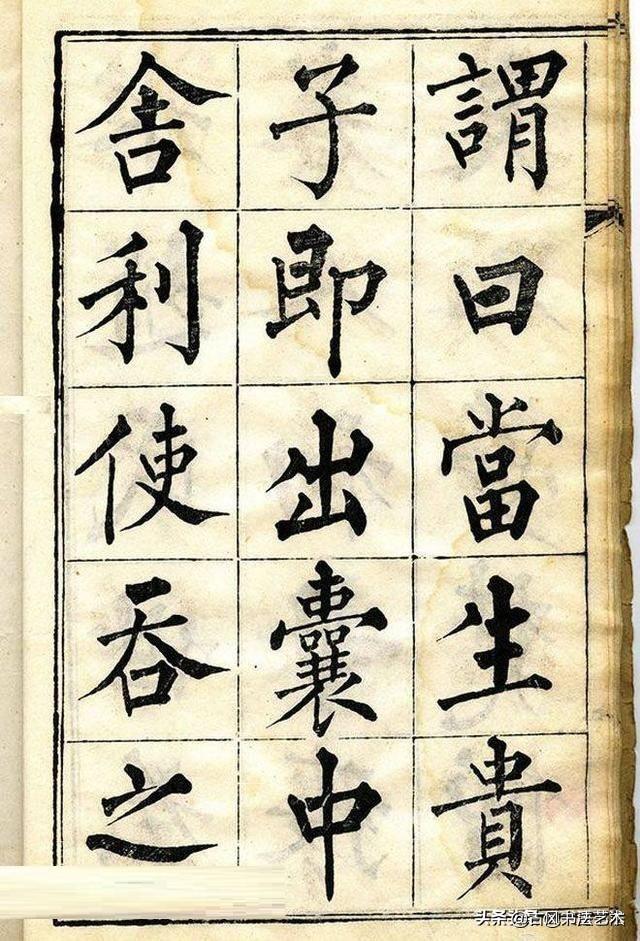 謂曰當生貴
子即出囊中
舍利使吞之
头条@古风书法艺术